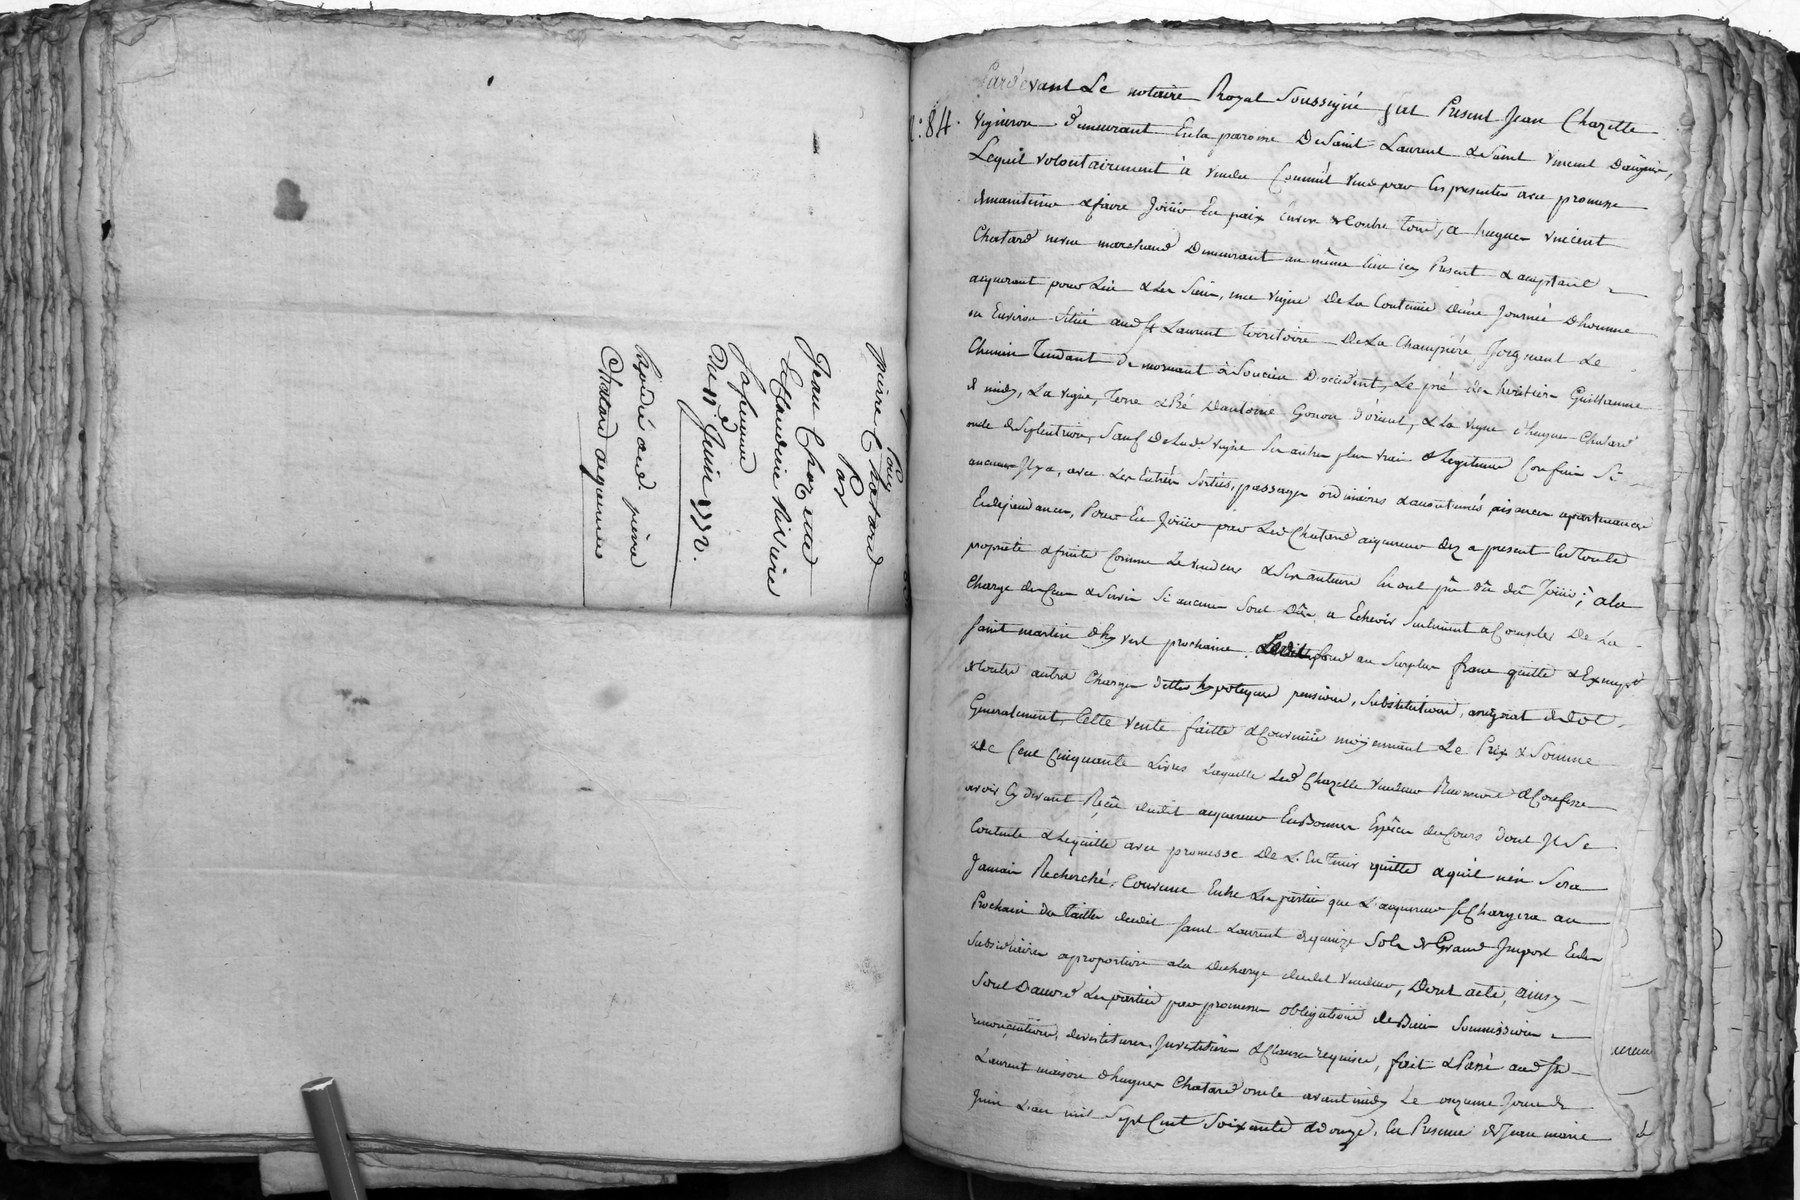 pour
pierre Chatard
Par
Jean Chazette
& Claudine Riviere
sa femme
Du 11e Juin 1772.
Expedié aud. pierre
Chatard acquereur
n° 84.
Pardevant Le notaire Royal Soussigné fut Present Jean Chazette
Vigneron demeurant En la paroisse De Saint Laurent & Saint Vincent Dagny,
Lequel volontairement à vendu Comme il vend par les presentes avec promesse
de maintenir & faire Joüir En paix Envers & Contre Tous, a hugues vincent
Chatard neveu marchand Demeurant au même lieu icy Present & acceptant
acquerant pour Lui & Les Siens, une vigne De La Contenue D'une Journée D'homme
ou Environ Située aud. St Laurent Territoire De La Champiere, Joignant Le
Chemin Tendant de mornant à Soucieu D'occident, Le pré des heritiers Guillaume
de midy, La vigne, Terre & Pré D'antoine Gonon d'orient, & La vigne d'hugues Chatard
oncle de Septentrion, Sauf De Lad. vigne Ses autres plus vrais & legitimes Confins Si
aucuns Il y a, avec Ses Entrées Sorties, passages ordinaires & accoutumés aisances apartenances
& dependances, Pour En Joüir par Led. Chatard acquereur dez a present En Toute
proprieté & fruits Comme Le vendeur & Ses auteurs En ont pû ou dû Joüir; a la
Charge des Cens & Servis Si aucuns Sont Dûs, a Echeoir Seulement a Compter De La
saint martin d'hyvert prochaine, au Surplus franc quitte & Exempt
de toutes autres Charges dettes hypoteques pensions, Substitutions, arrerages & de tout
Generalement, Cette vente faitte & Convenüe moyennant Le Prix & Somme
De Cent Cinquante Livres Laquelle Led. Chazette vendeur Reconnoit & Confesse
avoir Cy devant Reçüe dudit acquereur En Bonnes Espèces du Cours dont Il Se
Contente & L'en quitte avec promesse De L'En Tenir quitte & qu'il n'en Sera
Jamais Recherché, Convenu Entre Les parties que L'acquereur Se Chargera au
Prochain des Tailles dudit saint Laurent de quinze Sols de Grand Impost & des
Subsidiaires a proportion a la decharge dudit vendeur, Dont acte, ainsy
Sont D'accord Les parties par promesses obligations de Biens Soumissions
renonciations, devestitures, Investitures & Clauses requises, fait & Passé aud. St
Laurent maison d'hugues Chatard oncle avant midy Le onzieme Jour de
Juin L'an mil Sept Cent Soixante & douze, En Presence de Jean marie